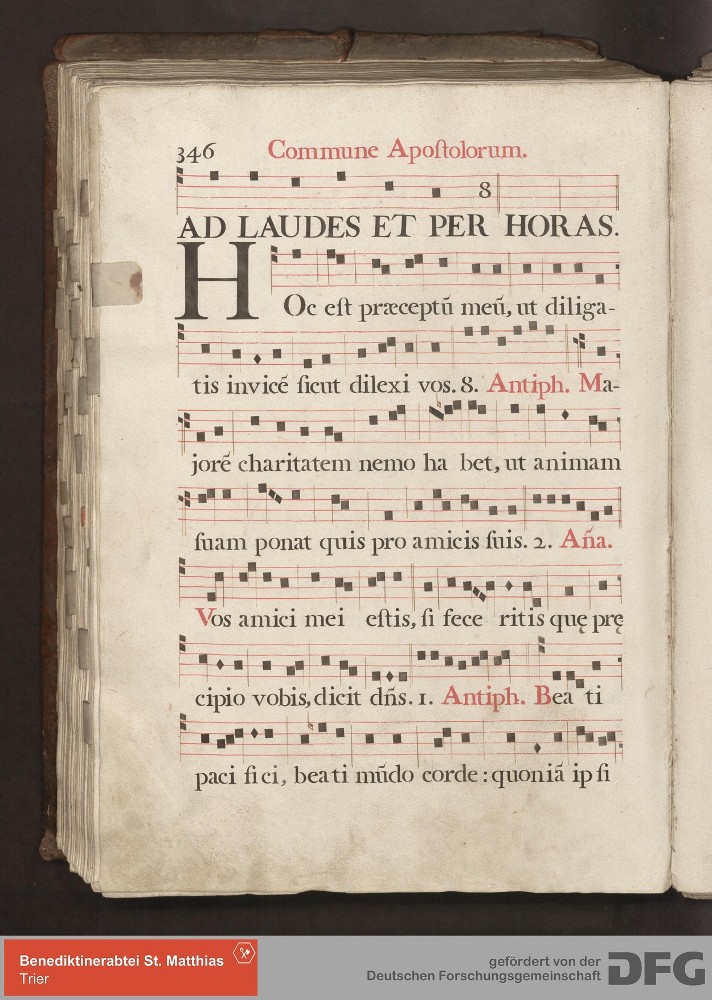 346 Commune Apoſtolorum.
8
AD LAUDES ET PER HORAS.
HOc eſt præceptū meū, ut diliga-
tis invicē ſicut dilexi vos. 8. Antiph. Ma-
jorē charitatem nemo ha bet, ut animam
ſuam ponat quis pro amicis ſuis. 2. Aña.
Vos amici mei eſtis, ſi fece ritis quę prę
cipio vobis, dicit dñs. 1. Antiph. Bea ti
paci fi ci, bea ti mūdo corde: quoniā ip ſi
Benediktinerabtei St. Matthias
Trier
gefördert von der
Deutschen Forschungsgemeinschaft
DFG